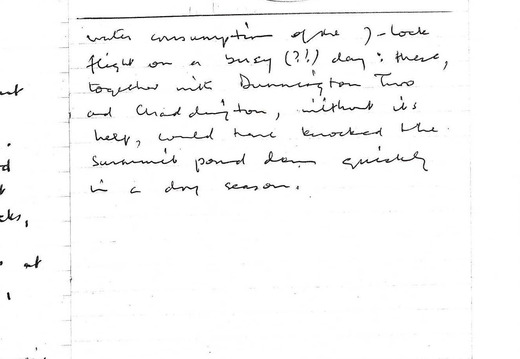 water consumption of the 7-lock
flight on a busy (?!) day: these,
together with Dunnington Two
and Chaddington, without its
help, would have knocked the
summit pound down quickly
in a dry season.
cks,
at